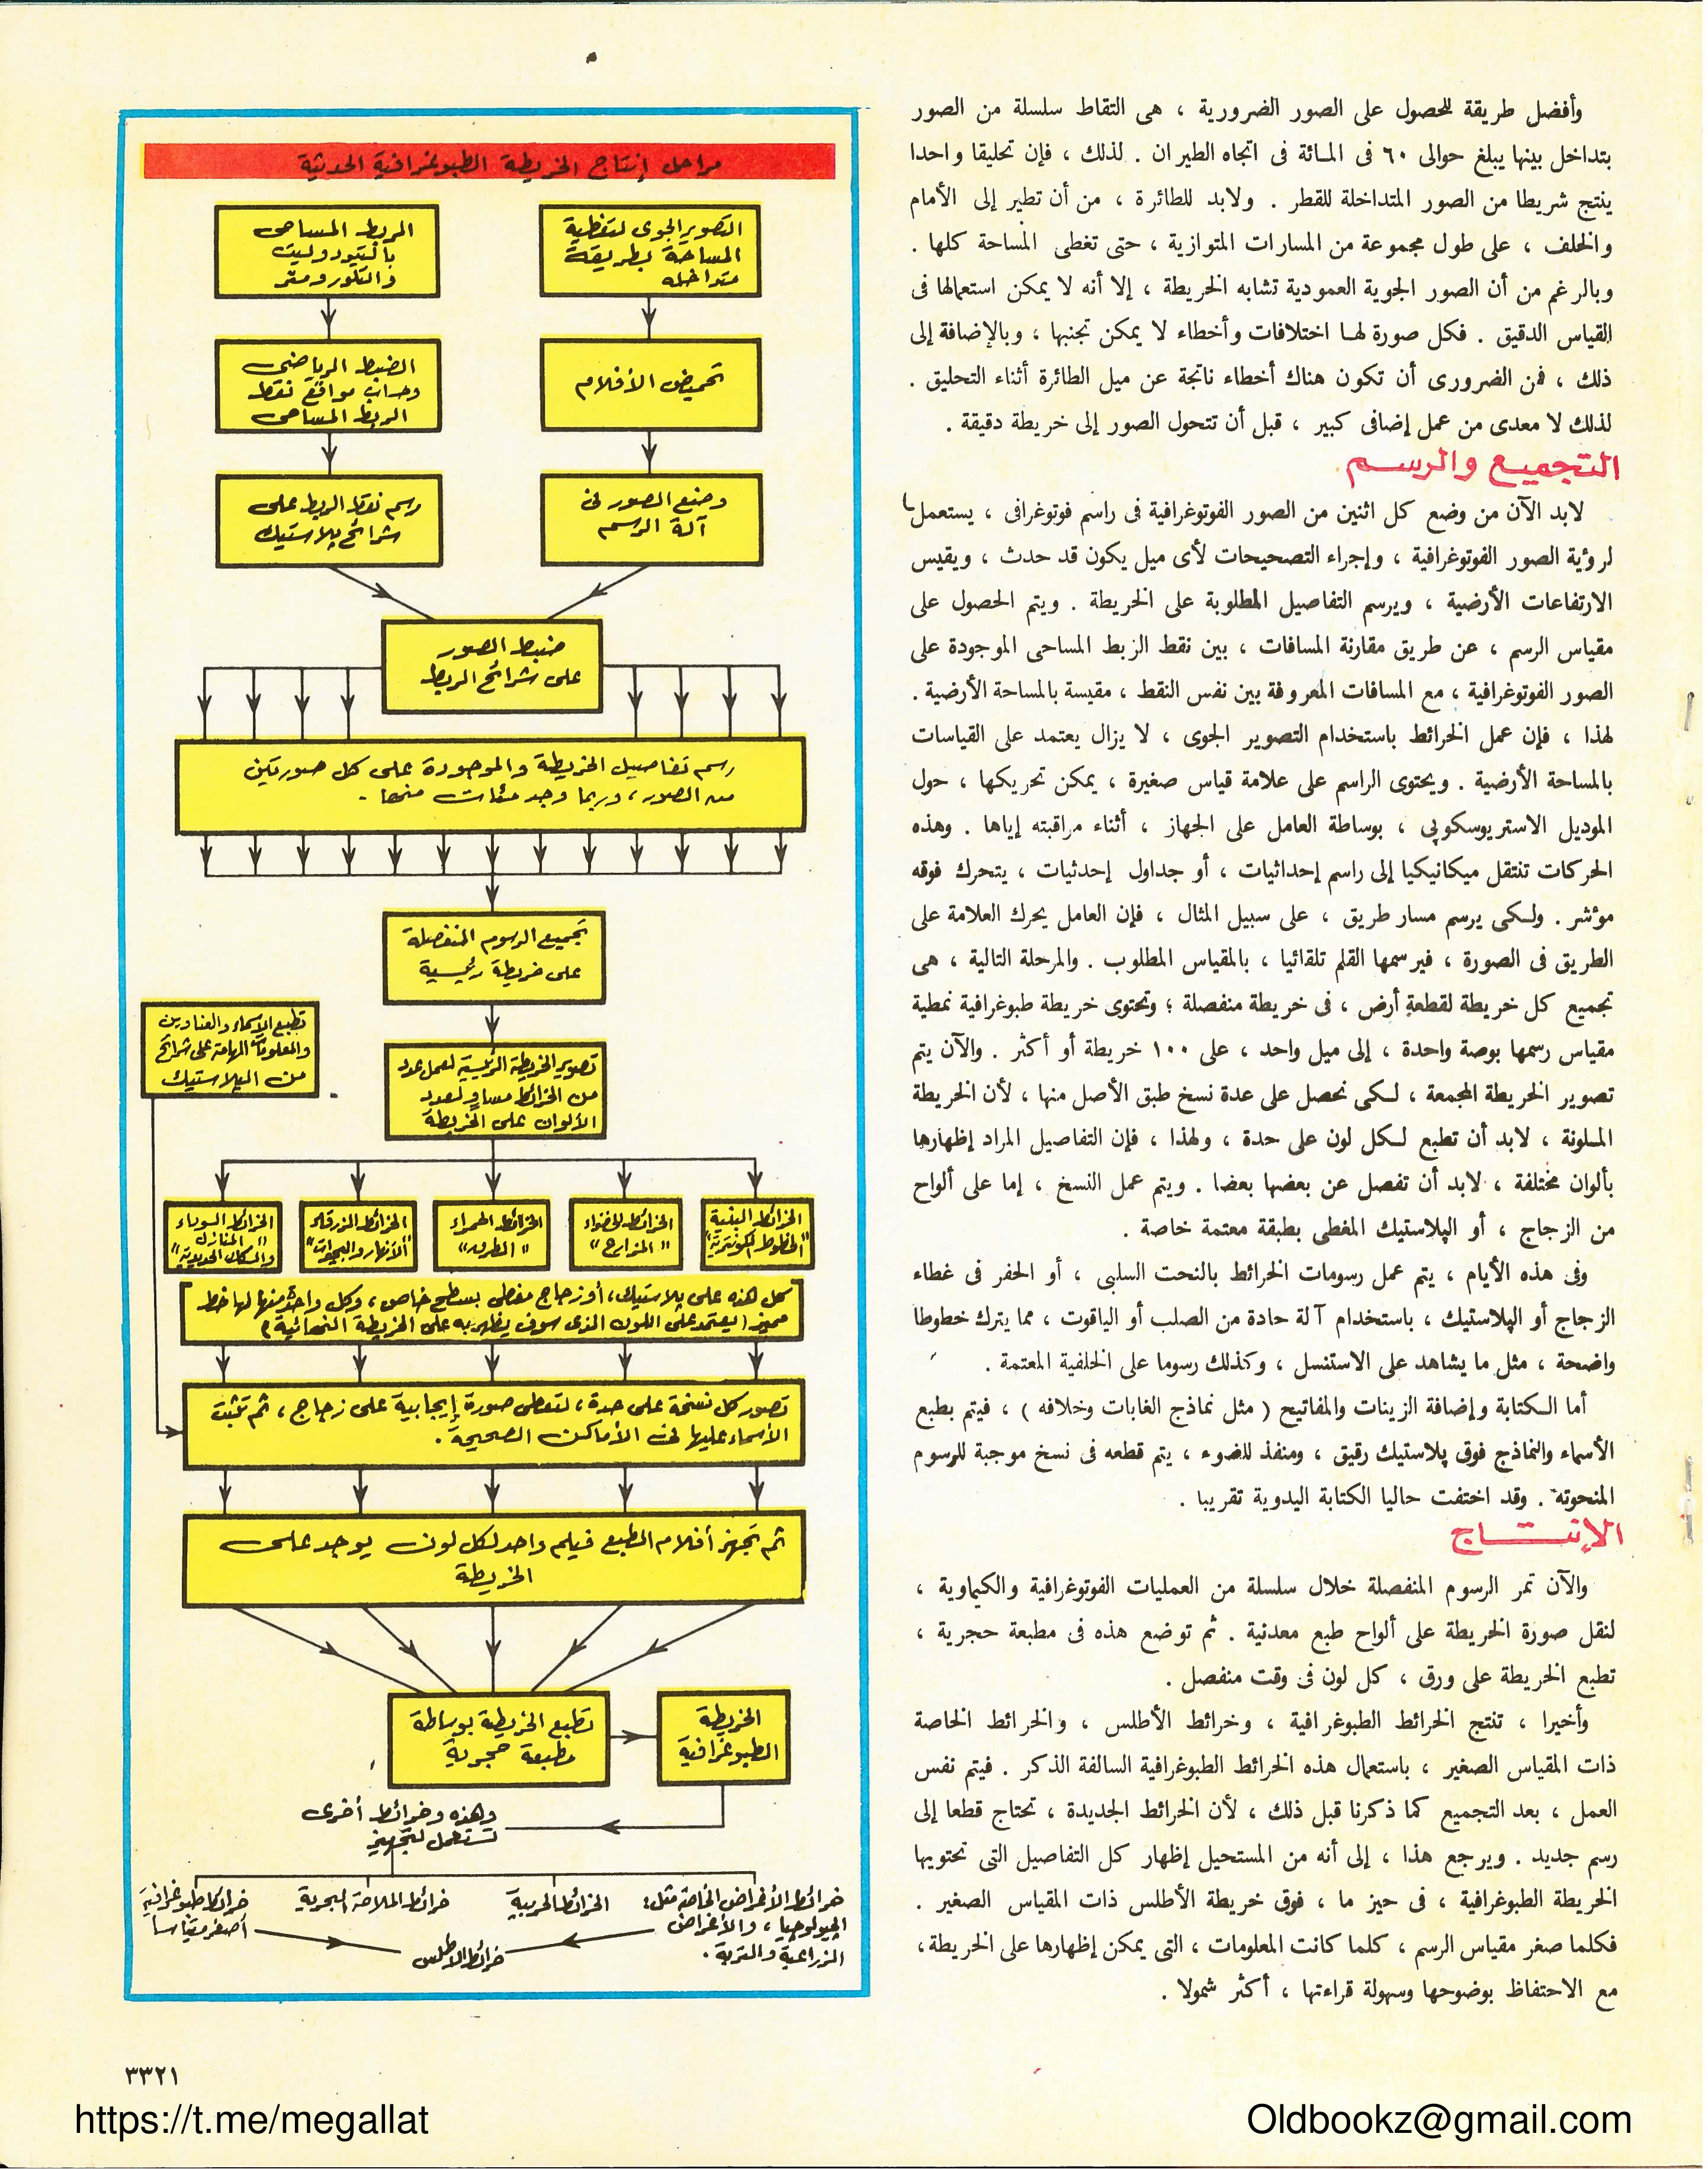 وأفضل طريقة للحصول على الصور الضرورية ، هى التقاط سلسلة من الصور
بتداخل بينها يبلغ حوالى ٦٠ فى المائة فى اتجاه الطيران . لذلك ، فإن تحليقا واحدا
ينتج شريطا من الصور المتداخلة للقطر . ولابد للطائرة ، من أن تطير إلى الأمام
والخلف ، على طول مجموعة من المسارات المتوازية ، حتى تغطى المساحة كلها .
وبالرغم من أن الصور الجوية العمودية تشابه الخريطة ، إلا أنه لا يمكن استعمالها فى
القياس الدقيق . فكل صورة لها اختلافات وأخطاء لا يمكن تجنبها ، وبالإضافة إلى
ذلك ، فمن الضرورى أن تكون هناك أخطاء ناتجة عن ميل الطائرة أثناء التحليق .
لذلك لا معدى من عمل إضافى كبير ، قبل أن تتحول الصور إلى خريطة دقيقة .
التجميع والرسم
لابد الآن من وضع كل اثنين من الصور الفوتوغرافية فى راسم فوتوغرافى ، يستعمل
لرؤية الصور الفوتوغرافية ، وإجراء التصحيحات لأى ميل يكون قد حدث ، ويقيس
الارتفاعات الأرضية ، ويرسم التفاصيل المطلوبة على الخريطة . ويتم الحصول على
مقياس الرسم ، عن طريق مقارنة المسافات ، بين نقط الربط المساحى الموجودة على
الصور الفوتوغرافية ، مع المسافات المعروفة بين نفس النقط ، مقيسة بالمساحة الأرضية .
لهذا ، فإن عمل الخرائط باستخدام التصوير الجوى ، لا يزال يعتمد على القياسات
بالمساحة الأرضية . ويحتوى الراسم على علامة قياس صغيرة ، يمكن تحريكها ، حول
الموديل الاستريوسكوپى ، بوساطة العامل على الجهاز ، أثناء مراقبته إياها . وهذه
الحركات تنتقل ميكانيكيا إلى راسم إحداثيات ، أو جداول إحدثيات ، يتحرك فوقه
مؤشر . ولكى يرسم مسار طريق ، على سبيل المثال ، فإن العامل يحرك العلامة على
الطريق فى الصورة ، فيرسمها القلم تلقائيا ، بالمقياس المطلوب . والمرحلة التالية ، هى
تجميع كل خريطة لقطعة أرض ، فى خريطة منفصلة ؛ وتحتوى خريطة طبوغرافية نمطية
مقياس رسمها بوصة واحدة ، إلى ميل واحد ، على ١٠٠ خريطة أو أكثر . والآن يتم
تصوير الخريطة المجمعة ، لكى نحصل على عدة نسخ طبق الأصل منها ، لأن الخريطة
الملونة ، لابد أن تطبع لكل لون على حدة ، ولهذا ، فإن التفاصيل المراد إظهارها
بألوان مختلفة ، لابد أن تفصل عن بعضها بعضا . ويتم عمل النسخ ، إما على ألواح
من الزجاج ، أو الپلاستيك المغطى بطبقة معتمة خاصة .
وفى هذه الأيام ، يتم عمل رسومات الخرائط بالنحت السلبى ، أو الحفر فى غطاء
الزجاج أو الپلاستيك ، باستخدام آلة حادة من الصلب أو الياقوت ، مما يترك خطوطا
واضحة ، مثل ما يشاهد على الاستنسل ، وكذلك رسوما على الخلفية المعتمة .
أما الكتابة وإضافة الزينات والمفاتيح ( مثل نماذج الغابات وخلافه ) ، فيتم بطبع
الأسماء والنماذج فوق پلاستيك رقيق ، ومنفذ للضوء ، يتم قطعه فى نسخ موجبة للرسوم
المنحوته . وقد اختفت حاليا الكتابة اليدوية تقريبا .
الإنتاج
والآن تمر الرسوم المنفصلة خلال سلسلة من العمليات الفوتوغرافية والكيماوية ،
لنقل صورة الخريطة على ألواح طبع معدنية . ثم توضع هذه فى مطبعة حجرية ،
تطبع الخريطة على ورق ، كل لون فى وقت منفصل .
وأخيرا ، تنتج الخرائط الطبوغرافية ، وخرائط الأطلس ، والخرائط الخاصة
ذات المقياس الصغير ، باستعمال هذه الخرائط الطبوغرافية السالفة الذكر . فيتم نفس
العمل ، بعد التجميع كما ذكرنا قبل ذلك ، لأن الخرائط الجديدة ، تحتاج قطعا إلى
رسم جديد . ويرجع هذا ، إلى أنه من المستحيل إظهار كل التفاصيل التى تحتويها
الخريطة الطبوغرافية ، فى حيز ما ، فوق خريطة الأطلس ذات المقياس الصغير .
فكلما صغر مقياس الرسم ، كلما كانت المعلومات ، التى يمكن إظهارها على الخريطة ،
مع الاحتفاظ بوضوحها وسهولة قراءتها ، أكثر شمولا .
مراحل إنتاج الخريطة الطبوغرافية الحديثة
التصوير الجوى لتغطية
المساحة بطريقة
متداخله
الربط المساحى
بالتيودوليت
والتلورومتر
تحميض الأفلام
الضبط الرياضى
وحساب مواقع نقط
الربط المساحى
وضع الصور فى
آلة الرسم
رسم نقط الربط على
شرائح پلاستيك
ضبط الصور
على شرائح الربط
رسم تفاصيل الخريطة والموجودة على كل صورتين
من الصور ، وربما وجد مئات منها .
تجميع الرسوم المنفصلة
على خريطة رئيسية
تطبع الأسماء والعناوين
والمعلومات الهامة على شرائح
من الپلاستيك
تصوير الخريطة الرئيسية لعمل عدد
من الخرائط مساوٍ لعدد
الألوان على الخريطة
الخرائط البنية
"الخطوط الكونتورية"
الخرائط الخضراء
"المزارع"
الخرائط الحمراء
"الطرق"
الخرائط الزرقاء
"الأنهار والبحيرات"
الخرائط السوداء
"المنازل
والسكك الحديدية"
كل هذه على پلاستيك ، أو زجاج مغطى بسطح خاص ، وكل واحدة منها لها خط
مميز (يعتمد على اللون الذى سوف يظهر به على الخريطة النهائية)
تصور كل نسخة على حدة ، لتعطى صورة إيجابية على زجاج ، ثم تثبت
الأسماء عليها فى الأماكن الصحيحة .
ثم تجهز أفلام الطبع فيلم واحد لكل لون يوجد على
الخريطة
تطبع الخريطة بوساطة
مطبعة حجرية
الخريطة
الطبوغرافية
وهذه وخرائط أخرى
تستعمل لتجهيز
خرائط الأغراض الخاصة مثل :
الچيولوچيا ، والأغراض
الزراعية والتربة .
الخرائط الحربية
خرائط الملاحة البحرية
خرائط طبوغرافية
أصغر مقياسا
خرائط الأطلس
٣٣٢١
https://t.me/megallat
Oldbookz@gmail.com